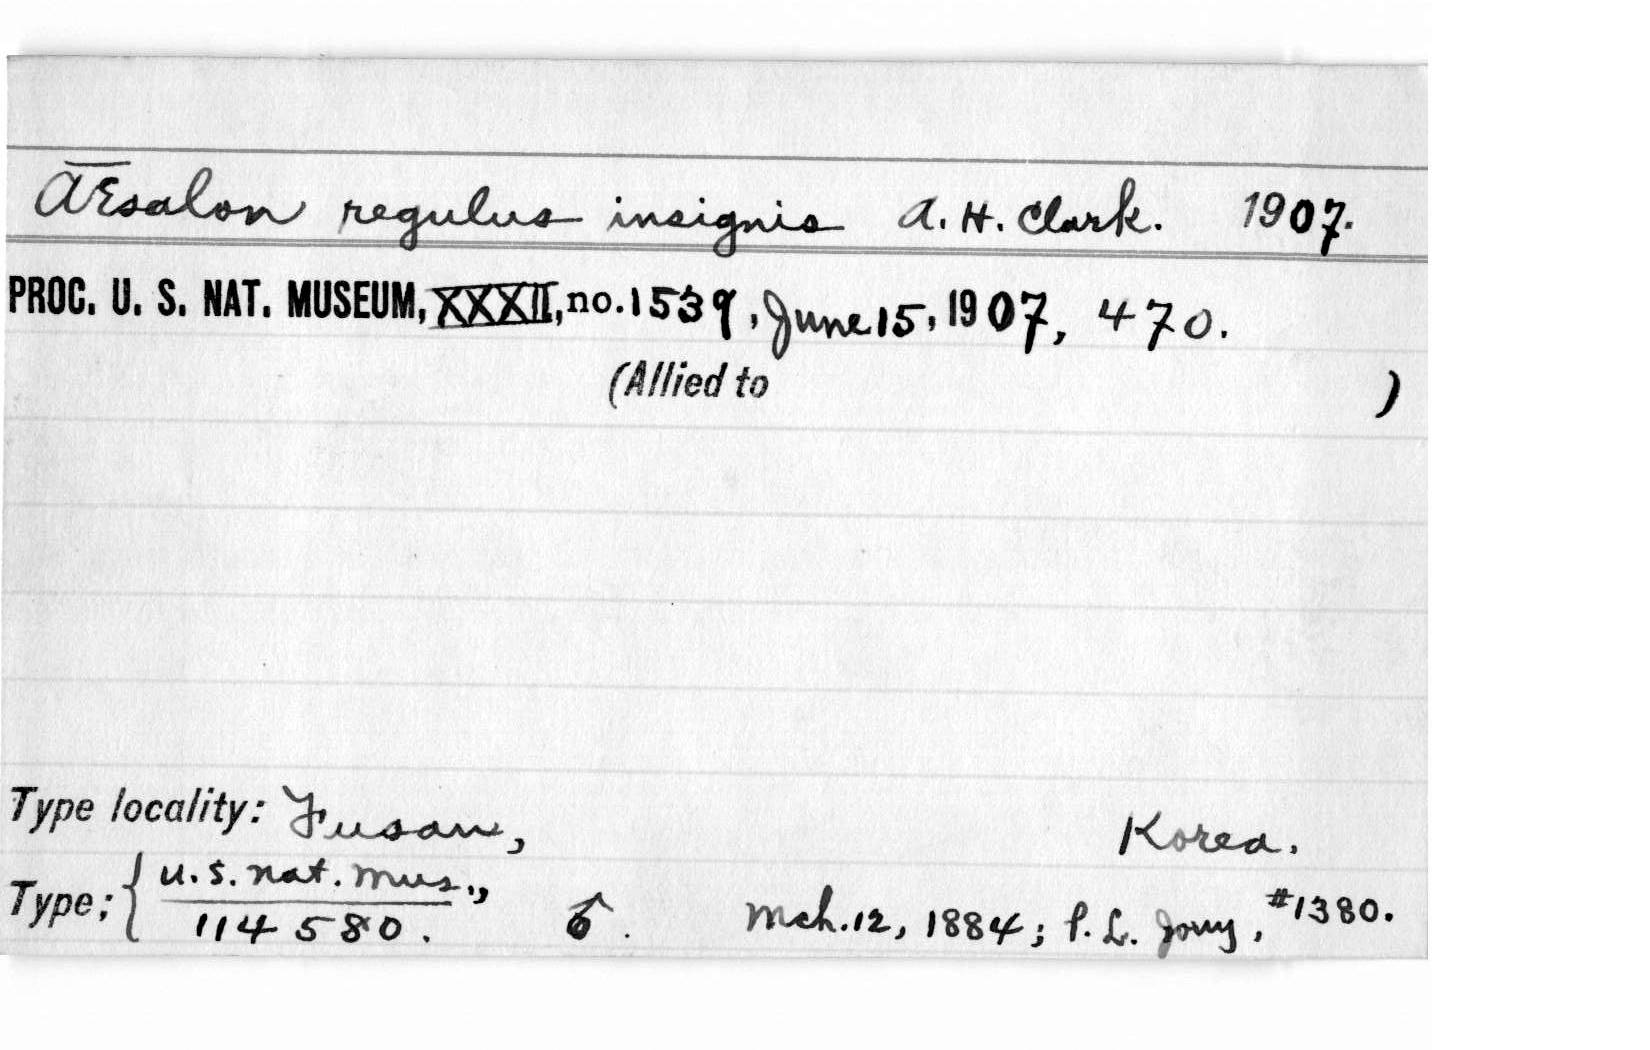 Æsalon regulus insignis A. H. Clark. 1907.
PROC. U. S. NAT. MUSEUM, XXXII, no. 1539, June 15, 1907, 470.
(Allied to )
Type locality: Fusan, Korea.
Type; { U. S. Nat. Mus., 114580. ♂. Mch. 12, 1884; P. L. Jouy, #1380.